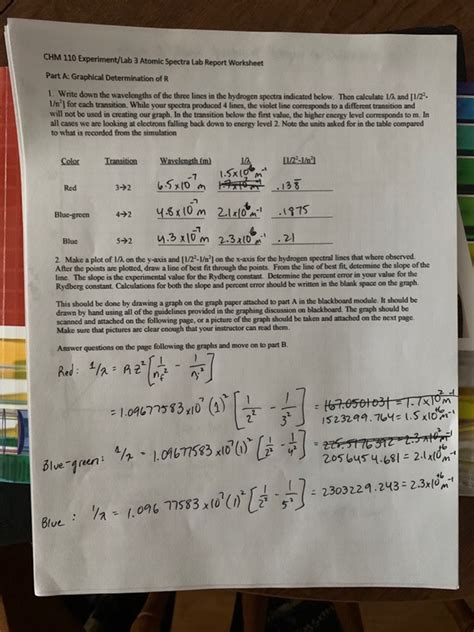 CHM 110 Experiment/Lab 3 Atomic Spectra Lab Report Worksheet
Part A: Graphical Determination of R
1. Write down the wavelengths of the three lines in the hydrogen spectra indicated below. Then calculate 1/λ and [1/2²-
1/n²] for each transition. While your spectra produced 4 lines, the violet line corresponds to a different transition and
will not be used in creating our graph. In the transition below the first value, the higher energy level corresponds to m. In
all cases we are looking at electrons falling back down to energy level 2. Note the units asked for in the table compared
to what is recorded from the simulation
Color Transition Wavelength (m) 1/λ [1/2²-1/n²]
Red 3→2 6.5x10⁻⁷ m 1.5x10⁶ m⁻¹ .138̅
Blue-green 4→2 4.8x10⁻⁷ m 2.1x10⁶ m⁻¹ .1875
Blue 5→2 4.3x10⁻⁷ m 2.3x10⁶ m⁻¹ .21
2. Make a plot of 1/λ on the y-axis and [1/2²-1/n²] on the x-axis for the hydrogen spectral lines that where observed.
After the points are plotted, draw a line of best fit through the points. From the line of best fit, determine the slope of the
line. The slope is the experimental value for the Rydberg constant. Determine the percent error in your value for the
Rydberg constant. Calculations for both the slope and percent error should be written in the blank space on the graph.
This should be done by drawing a graph on the graph paper attached to part A in the blackboard module. It should be
drawn by hand using all of the guidelines provided in the graphing discussion on blackboard. The graph should be
scanned and attached on the following page, or a picture of the graph should be taken and attached on the next page.
Make sure that pictures are clear enough that your instructor can read them.
Answer questions on the page following the graphs and move on to part B.
Red: 1/λ = RZ² [1/nf² - 1/ni²]
= 1.09677583 x10⁷ (1)² [1/2² - 1/3²] = 167.0501031 = 1.7x10² m⁻¹
1523299.764 = 1.5 x10⁶ m⁻¹
Blue-green: 1/λ = 1.09677583 x10⁷ (1)² [1/2² - 1/4²] =
2056454.681 = 2.1x10⁶ m⁻¹
Blue: 1/λ = 1.09677583 x10⁷ (1)² [1/2² - 1/5²] = 2303229.243 = 2.3x10⁶ m⁻¹